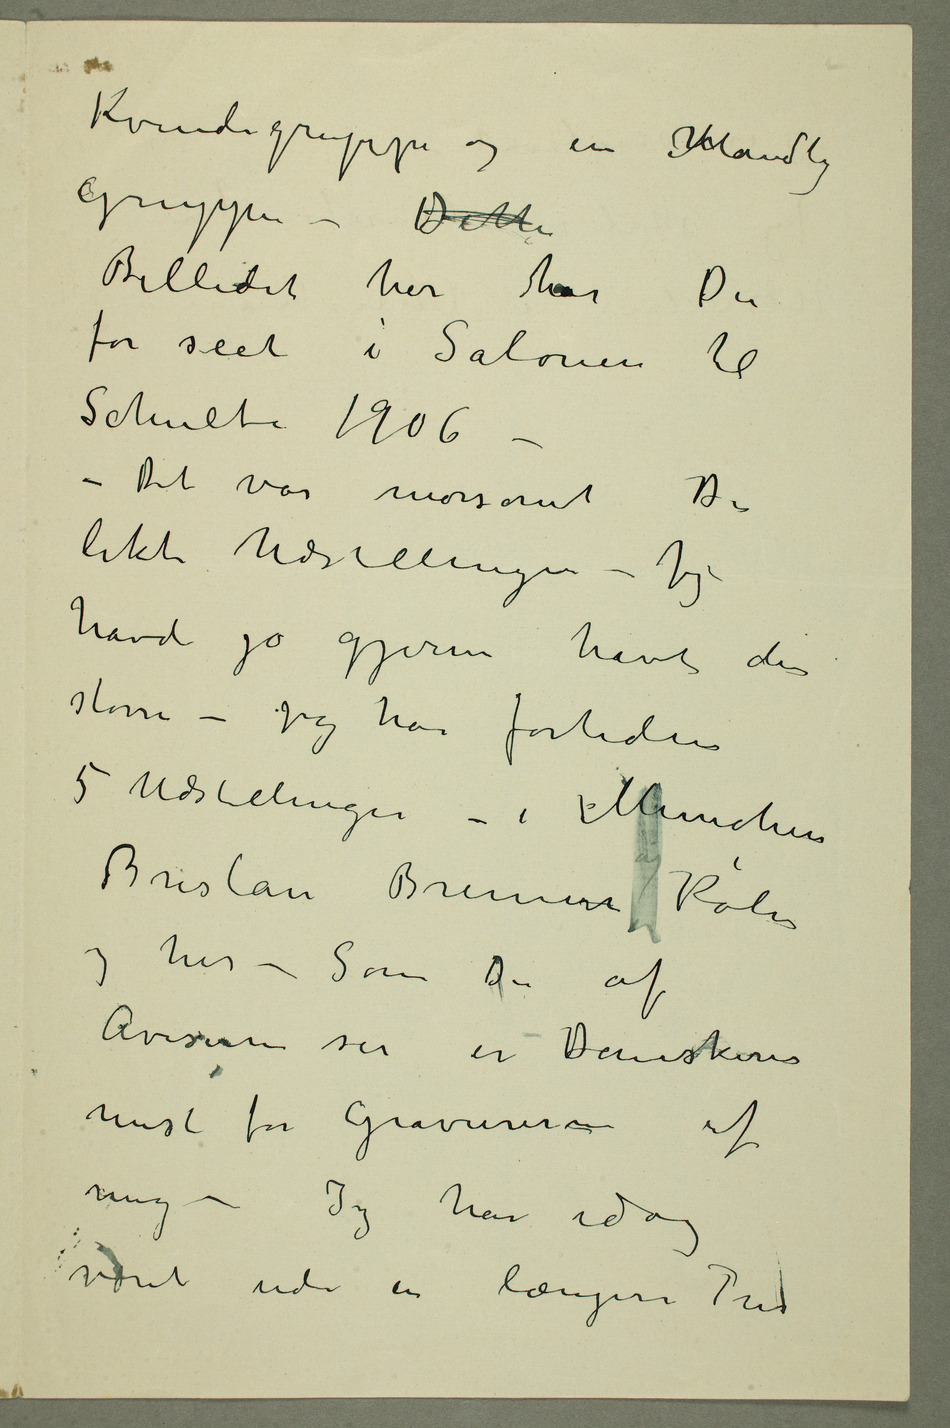 Kvindegruppe og en Mandlig
Gruppe – Dette
Billedet her har De
før seet i Salonen til
Schulte 1906 –
– Det var morsomt De
likte Udstillingen – Jeg
havde jo gjerne havt den
større – jeg har fortiden
5 Udstillinger – i München
Breslau Bremen Köln
og her – Som De af
Aviserne ser er Danskerne
mest for Gravurerne af
mig – Jeg har idag
været ude en længere Tur